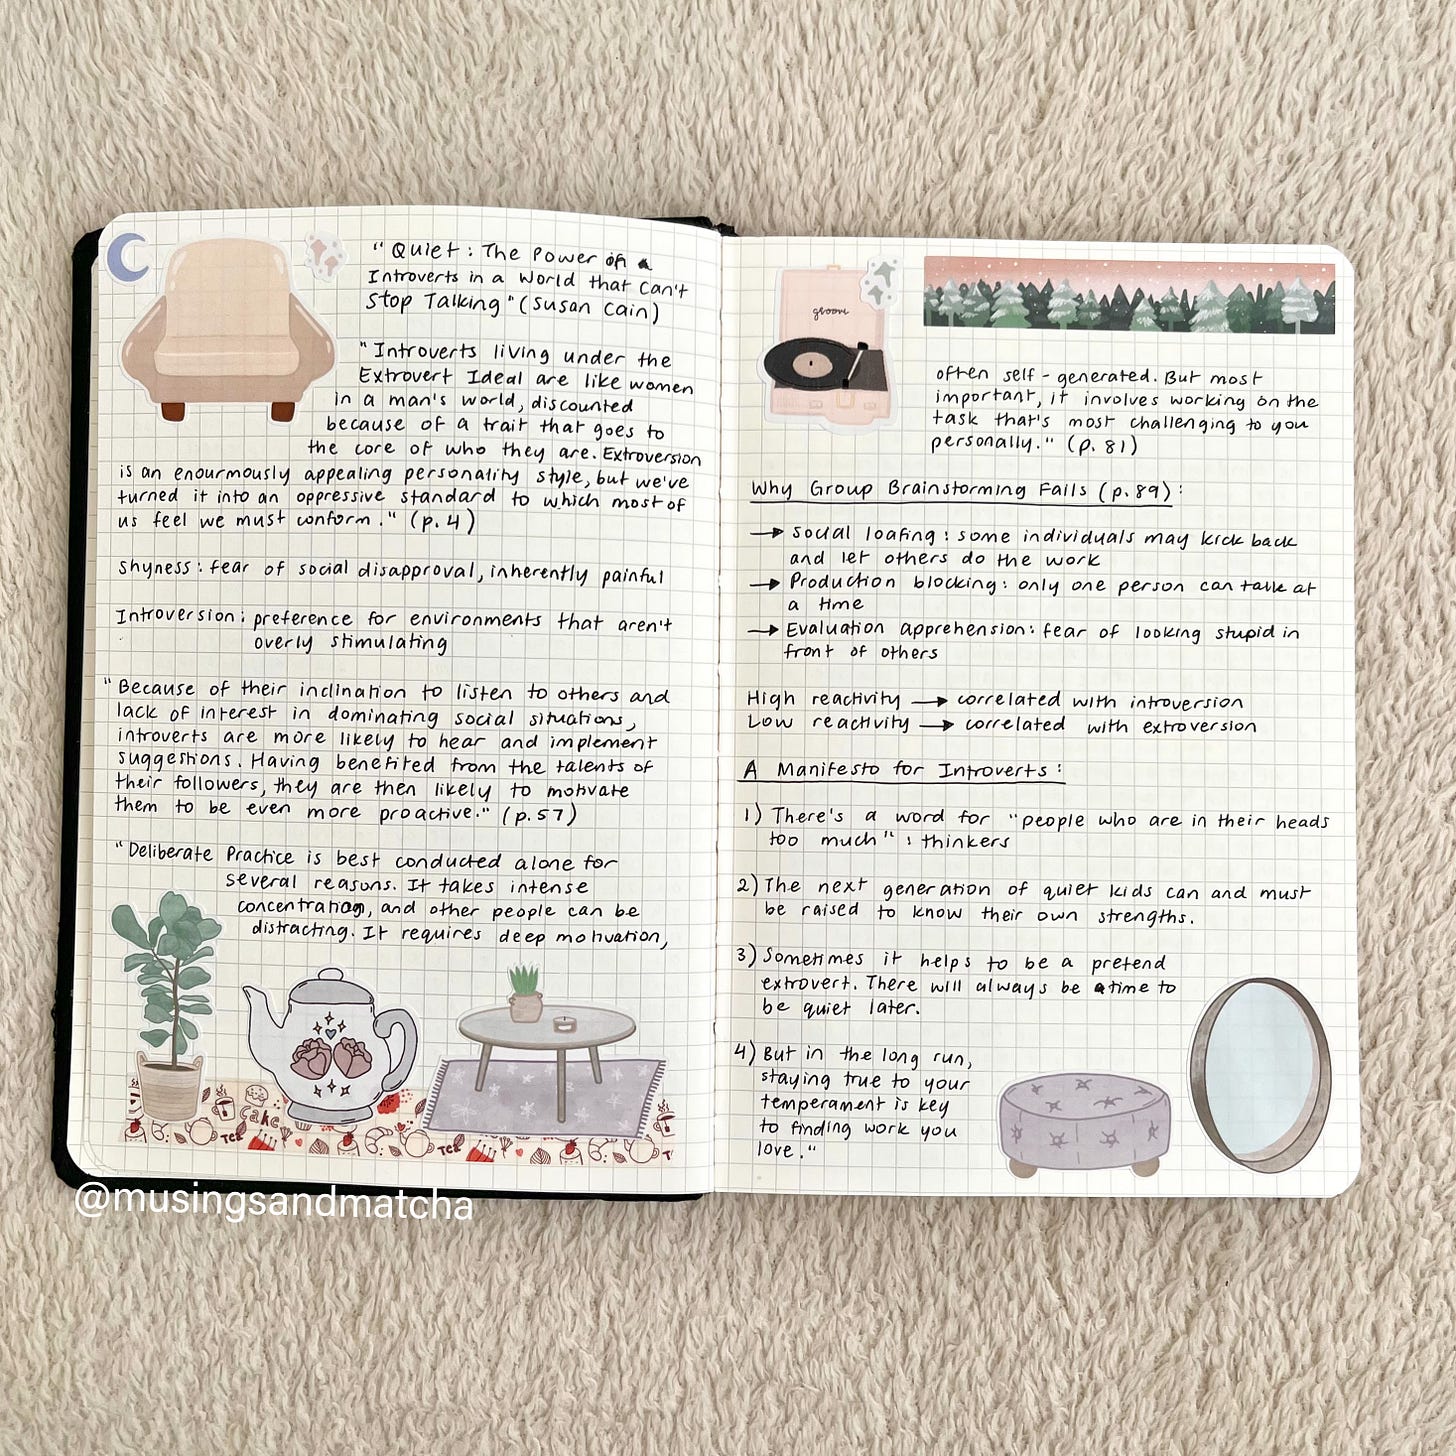 "Quiet: The Power of a
Introverts in a World that Can't
Stop Talking" (Susan Cain)
"Introverts living under the
Extrovert Ideal are like women
in a man's world, discounted
because of a trait that goes to
the core of who they are. Extroversion
is an enourmously appealing personality style, but we've
turned it into an oppressive standard to which most of
us feel we must conform." (p. 4)
Shyness: fear of social disapproval, inherently painful
Introversion: preference for environments that aren't
overly stimulating
"Because of their inclination to listen to others and
lack of interest in dominating social situations,
introverts are more likely to hear and implement
suggestions. Having benefited from the talents of
their followers, they are then likely to motivate
them to be even more proactive." (p. 57)
"Deliberate Practice is best conducted alone for
several reasons. It takes intense
concentration, and other people can be
distracting. It requires deep motivation,
Cake
Tea
Tea
@musingsandmatcha
groove
often self-generated. But most
important, it involves working on the
task that's most challenging to you
personally." (p. 81)
Why Group Brainstorming Fails (p. 89):
→ Social loafing: some individuals may kick back
and let others do the work
→ Production blocking: only one person can talk at
a time
→ Evaluation apprehension: fear of looking stupid in
front of others
High reactivity → correlated with introversion
Low reactivity → correlated with extroversion
A Manifesto for Introverts:
1) There's a word for "people who are in their heads
too much": thinkers
2) The next generation of quiet kids can and must
be raised to know their own strengths.
3) Sometimes it helps to be a pretend
extrovert. There will always be a time to
be quiet later.
4) But in the long run,
staying true to your
temperament is key
to finding work you
love."